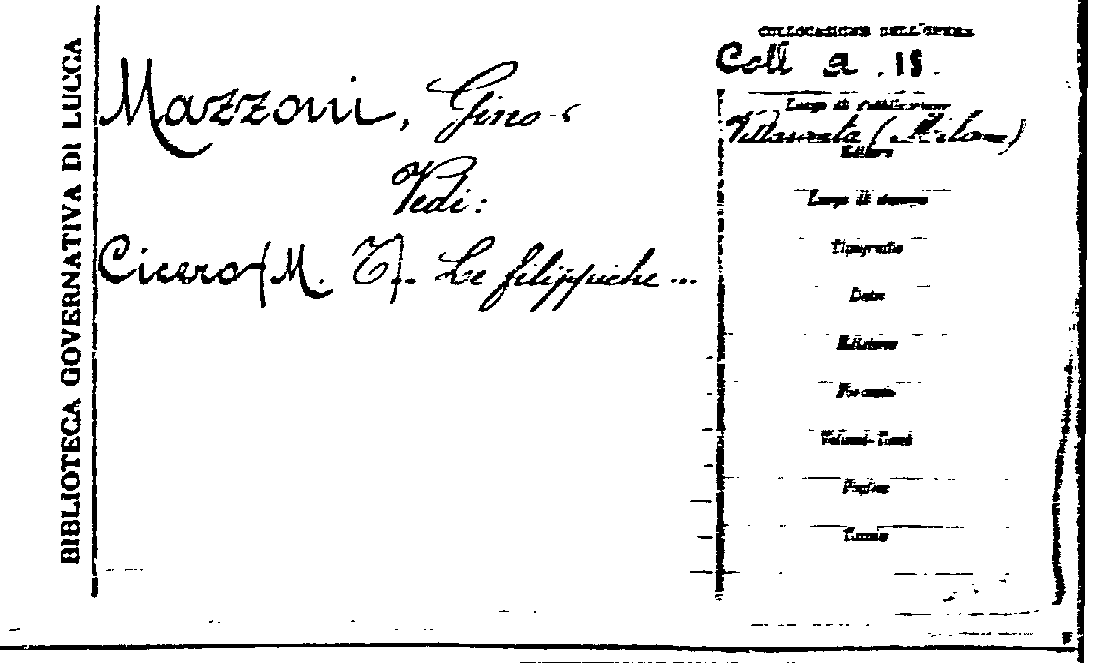 BIBLIOTECA GOVERNATIVA DI LUCCA
Mazzoni, Gino
Vedi:
Cicero (M. T.). Le filippiche ...
COLLOCAZIONE DELL'OPERA
Coll a. 18.
Luogo di pubblicazione
Villasanta (Milano)
Editore
Luogo di stampa
Tipografia
Data
Edizione
Formato
Volumi-Tomi
Pagine